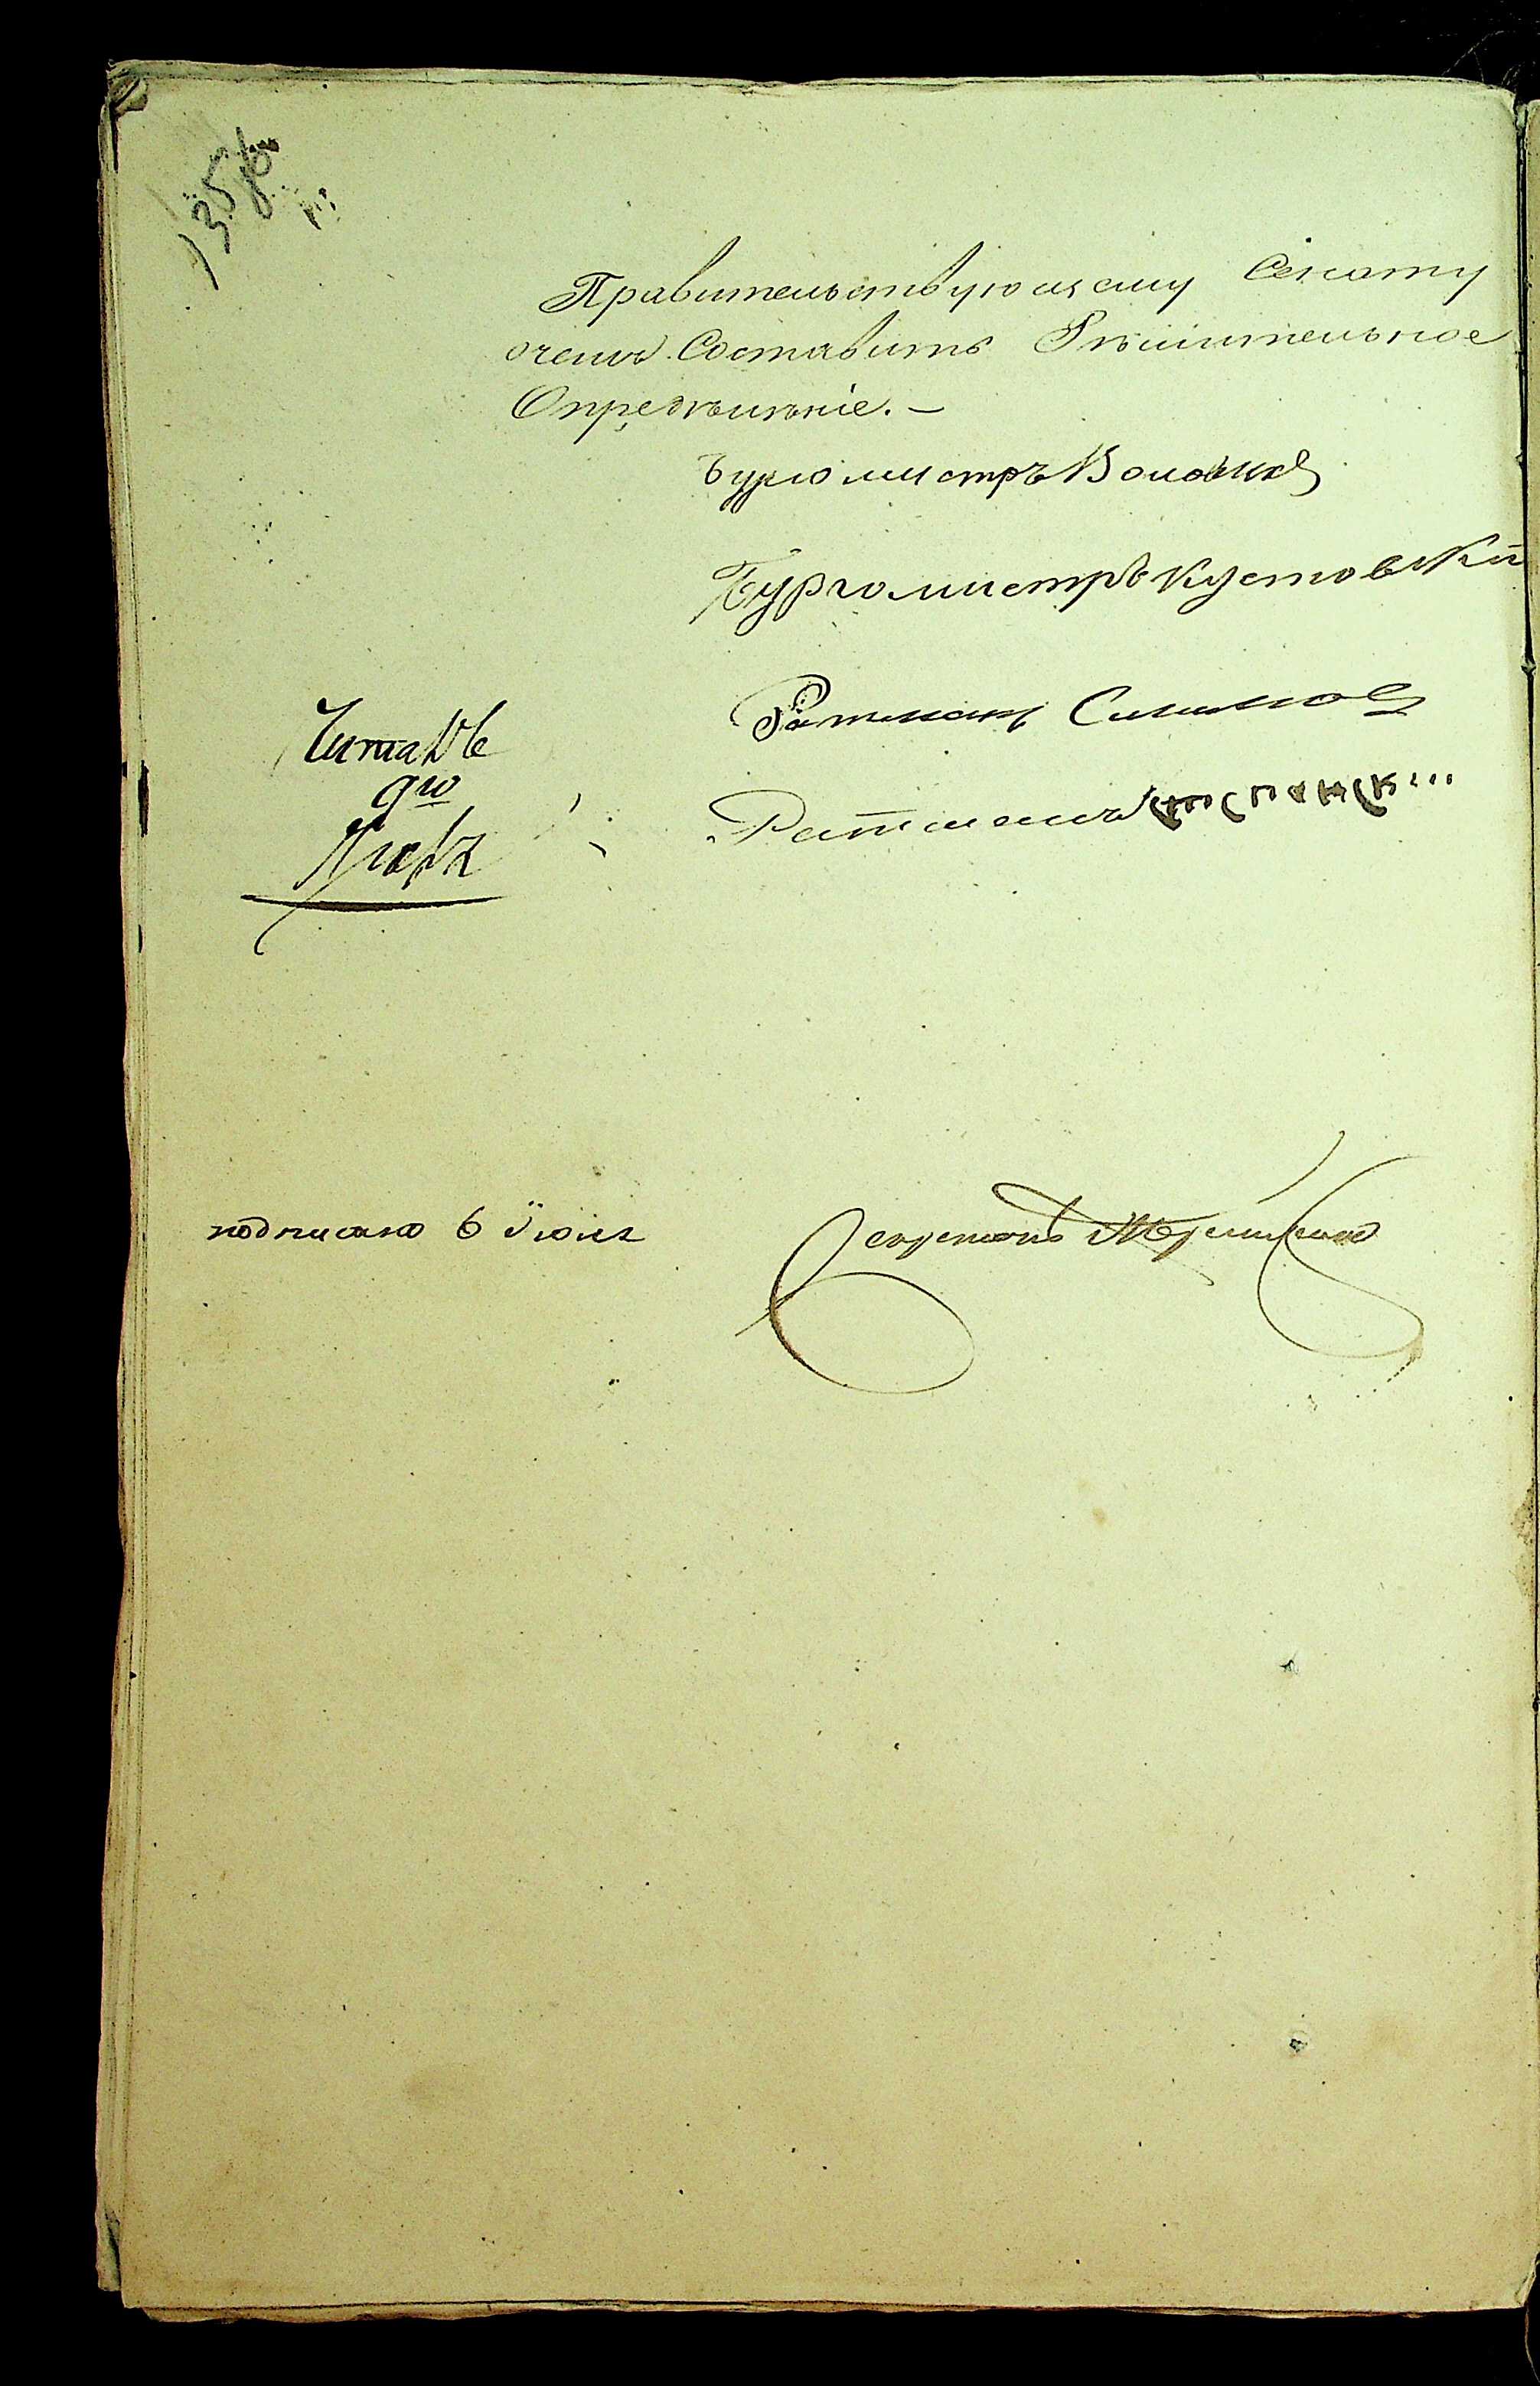 135 об
Правительствующему Сенату
о чемъ Составить Рѣшительное
Опредѣлѣніе. —
Бургомистръ Воловик
Бургомистръ Кустовский
Ратманъ Симиков
Ратманъ
Читалъ
подписано 6 Июня
Секретарь